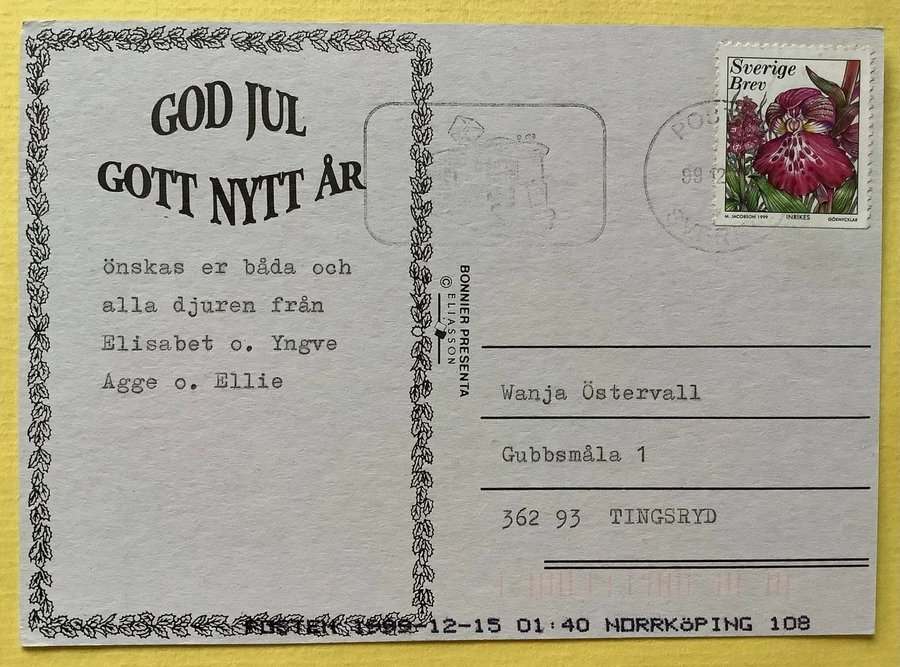 GOD JUL
GOTT NYTT ÅR
önskas er båda och
alla djuren från
Elisabet o. Yngve
Agge o. Ellie
BONNIER PRESENTA
© ELIASSON
Sverige
Brev
M. JACOBSON 1999 INRIKES GÖKNYCKLAR
99 12
Wanja Östervall
Gubbsmåla 1
362 93 TINGSRYD
POSTEN 1999-12-15 01:40 NORRKÖPING 108